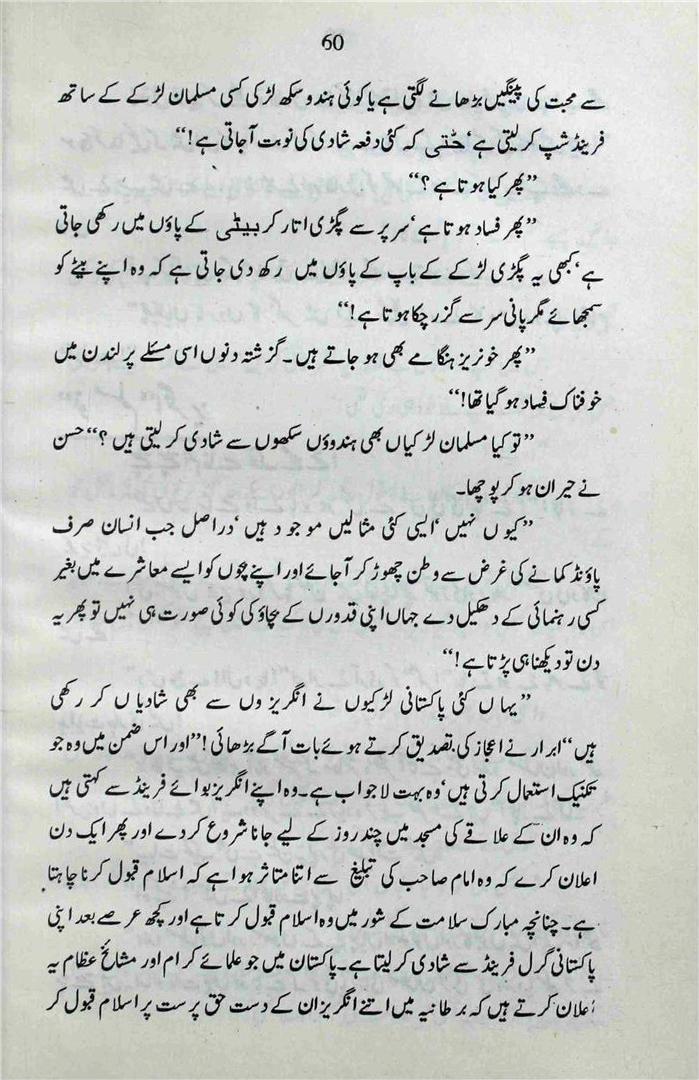 60
سے محبت کی پینگیں بڑھانے لگتی ہے یا کوئی ہندو سکھ لڑکی کسی مسلمان لڑکے کے ساتھ
فرینڈ شپ کر لیتی ہے‘ حتٰی کہ کئی دفعہ شادی کی نوبت آ جاتی ہے!‘‘
’’پھر کیا ہوتا ہے؟‘‘
’’پھر فساد ہوتا ہے‘ سر پر سے پگڑی اتار کر بیٹی کے پاؤں میں رکھی جاتی
ہے‘ کبھی یہ پگڑی لڑکے کے باپ کے پاؤں میں رکھ دی جاتی ہے کہ وہ اپنے بیٹے کو
سمجھائے مگر پانی سر سے گزر چکا ہوتا ہے!‘‘
’’پھر خونریز ہنگامے بھی ہو جاتے ہیں۔ گزشتہ دنوں اسی مسئلے پر لندن میں
خوفناک فساد ہو گیا تھا!‘‘
’’تو کیا مسلمان لڑکیاں بھی ہندوؤں سکھوں سے شادی کر لیتی ہیں؟‘‘ حسن
نے حیران ہو کر پوچھا۔
’’کیوں نہیں‘ ایسی کئی مثالیں موجود ہیں‘ دراصل جب انسان صرف
پاؤنڈ کمانے کی غرض سے وطن چھوڑ کر آ جائے اور اپنے بچوں کو ایسے معاشرے میں بغیر
کسی رہنمائی کے دھکیل دے جہاں اپنی قدروں کے بچاؤ کی کوئی صورت ہی نہیں تو پھر یہ
دن تو دیکھنا ہی پڑتا ہے!‘‘
’’یہاں کئی پاکستانی لڑکیوں نے انگریزوں سے بھی شادیاں کر رکھی
ہیں‘‘ ابرار نے اعجاز کی تصدیق کرتے ہوئے بات آگے بڑھائی!’’اور اس ضمن میں وہ جو
تکنیک استعمال کرتی ہیں‘ وہ بہت لاجواب ہے۔ وہ اپنے انگریز بوائے فرینڈ سے کہتی ہیں
کہ وہ ان کے علاقے کی مسجد میں چند روز کے لیے جانا شروع کر دے اور پھر ایک دن
اعلان کرے کہ وہ امام صاحب کی تبلیغ سے اتنا متاثر ہوا ہے کہ اسلام قبول کرنا چاہتا
ہے۔ چنانچہ مبارک سلامت کے شور میں وہ اسلام قبول کرتا ہے اور کچھ عرصے بعد اپنی
پاکستانی گرل فرینڈ سے شادی کر لیتا ہے۔ پاکستان میں جو علمائے کرام اور مشائخ عظام یہ
اعلان کرتے ہیں کہ برطانیہ میں اتنے انگریز ان کے دست حق پرست پر اسلام قبول کر